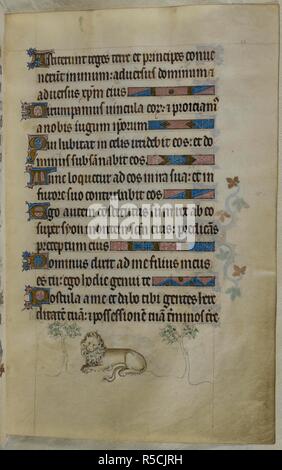 Astiterunt reges terre et principes conue
nerūt in unum: aduersus dominum ⁊
aduersus xp̄m eius
Dirumpamus uincula eoꝝ: et proiciam᾽
a nobis iugum ipsorum
Qui habitat in celis irridebit eos: et do
minus subsannabit eos
Tunc loquetur ad eos in ira sua: et in
furore suo conturbabit eos
Ego autem constitutus sum rex ab eo
super syon montem scm̄ eius: predicās
preceptum eius
Dominus dixit ad me filius meus
es tu: ego hodie genui te
Postula a me et dabo tibi gentes here
ditatē tuā: ⁊ possessionē tuā t̄minos t̄re
alamy
R5CJRH